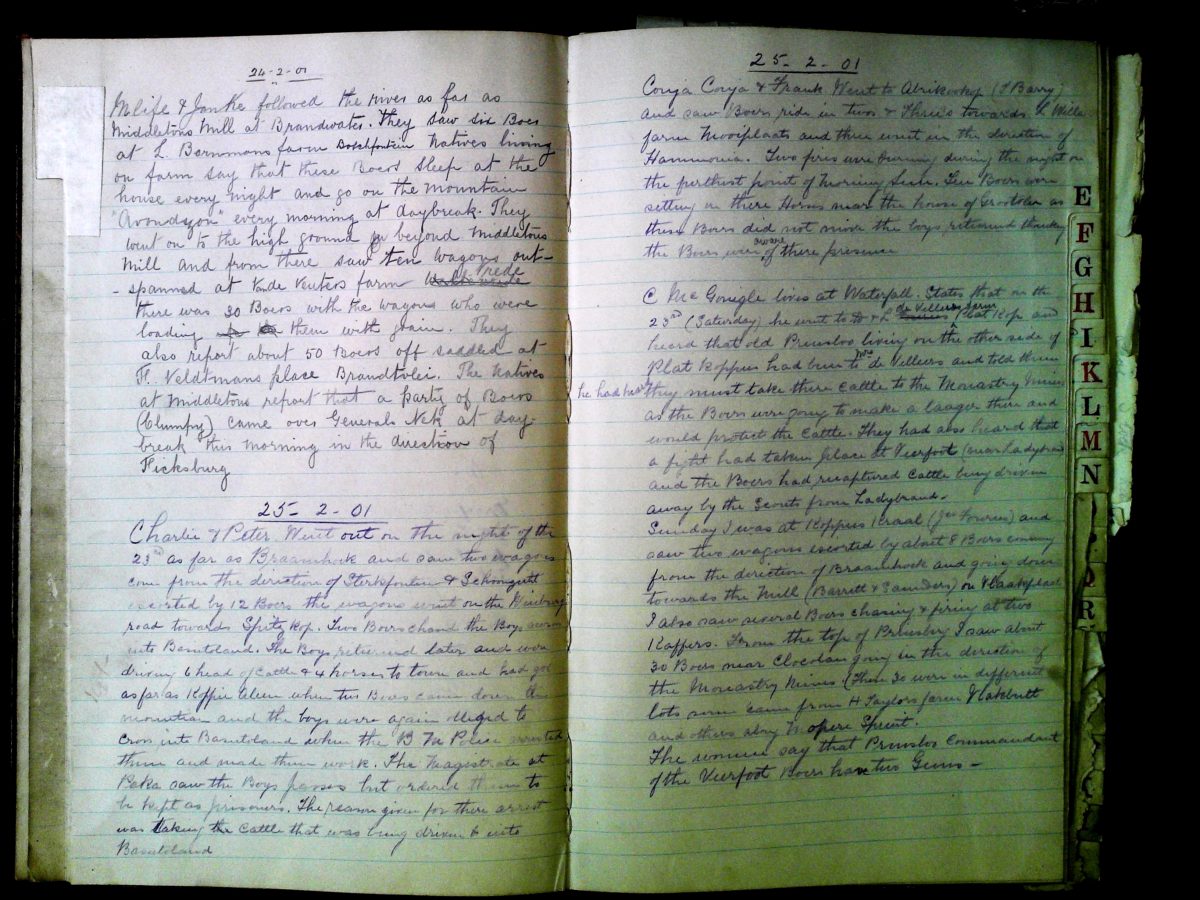 24-2-01
Mlife & Janke followed the river as far as
Middletons Mill at Brandwater. They saw six Boers
at L. Bernmans farm Boschfontein Natives living
on farm say that these Boers sleep at the
house every night and go on the mountain
"Avondzon" every morning at daybreak. They
went on to the high ground beyond Middletons
Mill and from there saw ten wagons out-
-spanned at Van de Venters farm Vrede
there was 30 Boers with the wagons who were
loading them with grain. They
also report about 50 Boers off saddled at
F. Veldtmans place Brandvlei. The Natives
at Middletons report that a party of Boers
(Clumpy) came over Generals Nek at day-
break this morning in the direction of
Ficksburg
25-2-01
Charlie & Peter Went out on the night of the
23rd as far as Braamhoek and saw two wagons
come from the direction of Sterkfontein & Schoongezicht
escorted by 12 Boers the wagons went on the Winburg
road towards Spitz Kop. Two Boers chased the Boys across
into Basutoland. The Boys returned later and were
driving 6 head of Cattle & 4 horses to town and had got
as far as Koffie when two Boers came down the
mountain and the boys were again obliged to
cross into Basutoland when the B M Police arrested
them and made them work. The Magistrate at
saw the Boys passes but ordered them to
be kept as prisoners. The reason given for there arrest
was taking the Cattle that was being driven to into
Basutoland
25-2-01
Conga Conga & Frank Went to Afrikaskop (T Barry)
and saw Boers ride in twos & Threes towards L. Mills
farm Mooiplaats and three went in the direction of
Hammonia. Two fires were burning during the night on
the furthest point of Morning Sun. Ten Boers were
setting on there Horses near the house of Grootvlei as
these Boers did not mind the boys returned thinking
the Boers were aware of there presence
C. McGonigle lives at Waterfall. States that on the
23rd (Saturday) he went to De Villiers farm Plat Kop and
heard that old Prinsloo living on the other side of
Plat Koppies had been to de Villiers and told them
he had heard they must take there cattle to the Monastry Mines
as the Boers were going to make a laager there and
would protect the Cattle. They had also heard that
a fight had taken place at Vierfoot (near Ladybrand)
and the Boers had recaptured Cattle being driven
away by the Scouts from Ladybrand-
Sunday I was at Koppies Kraal (Jas Fowrie) and
saw two wagons escorted by about 8 Boers coming
from the direction of Braamhoek and going down
towards the Mill (Barrett & Saunders) on Vlaakplaats
I also saw several Boers chasing & firing at two
Kaffers. From the top of Prinsburg I saw about
30 Boers near Clocolan going in the direction of
the Monastry Mines (These 30 were in different
lots some came from H Taylors farm
and others along Mopere Spruit.
The women say that Prinsloo Commandant
of the Vierfoot Boers have two Guns-
E
F
G
H
I
K
L
M
N
R